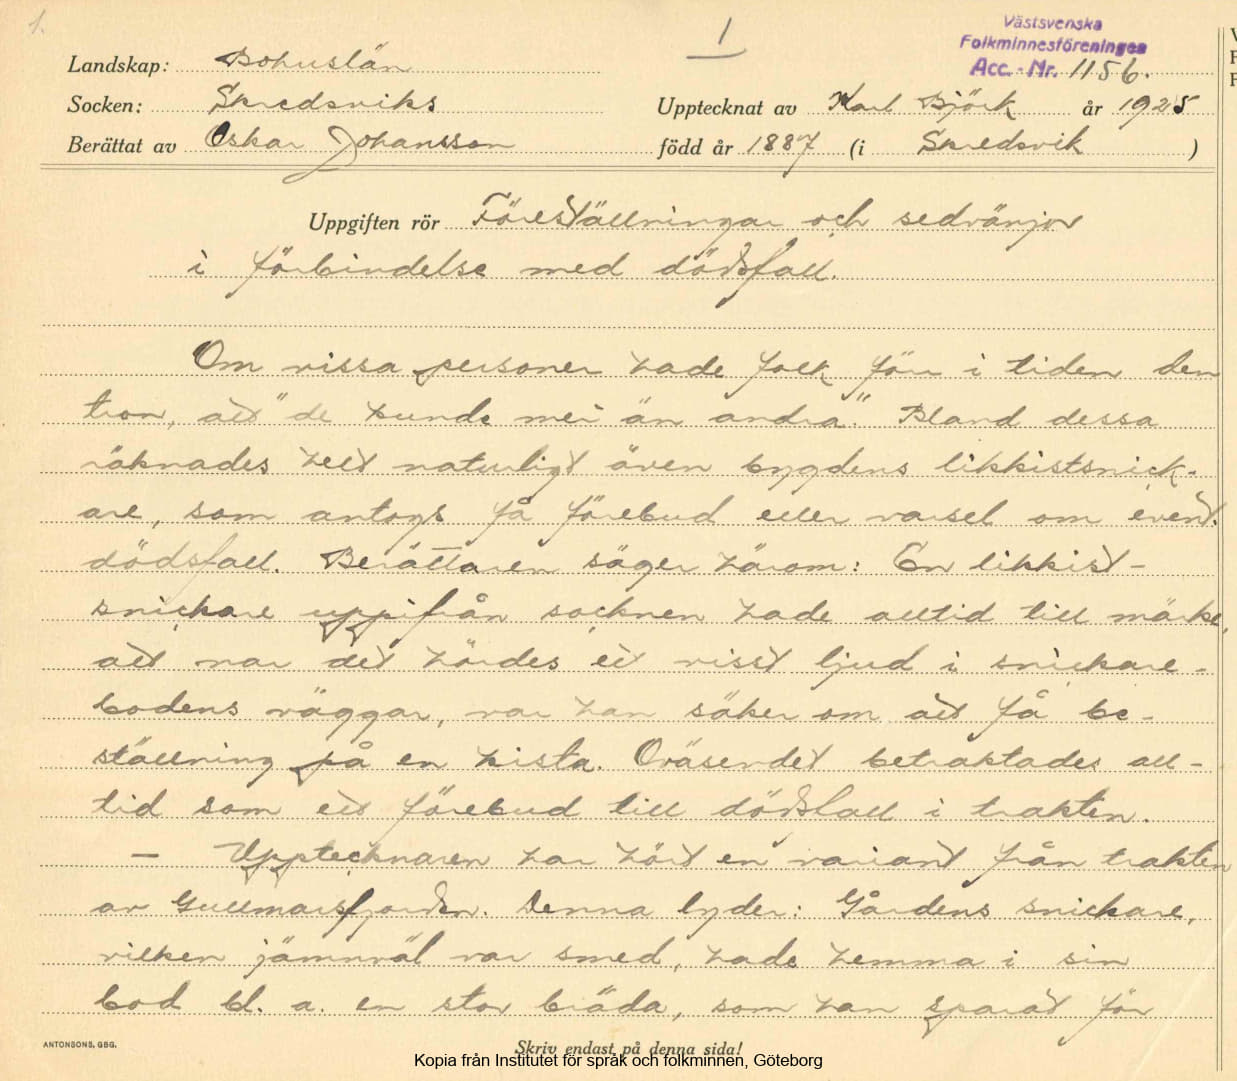 1.
1
Västsvenska
Folkminnesföreningen
Acc. - Nr. 1156.
Landskap: Bohuslän
Socken: Skredsviks
Upptecknat av Karl Björk år 1925
Berättat av Oskar Johansson
född år 1887 (i Skredsvik )
Uppgiften rör Föreställningar och sedvänjor
i förbindelse med dödsfall.
Om vissa personer hade folk förr i tiden den
tron, att "de kunde mer än andra". Bland dessa
räknades helt naturligt även bygdens likkistsnick-
are, som antogs få förebud eller varsel om event.
dödsfall. Berättaren säger härom: En likkist-
snickare uppifrån socknen hade alltid till märke,
att när det hördes ett visst ljud i snickare-
bodens väggar, var han säker om att få be-
ställning på en kista. Oväsendet betraktades all-
tid som ett förebud till dödsfall i trakten.
— Upptecknaren har hört en variant från trakten
av Gullmarsfjorden. Denna lyder: Gårdens snickare,
vilken jämnväl var smed, hade hemma i sin
bod bl. a. en stor bräda, som han sparat för
ANTONSONS, GBG.
Skriv endast på denna sida!
Kopia från Institutet för språk och folkminnen, Göteborg